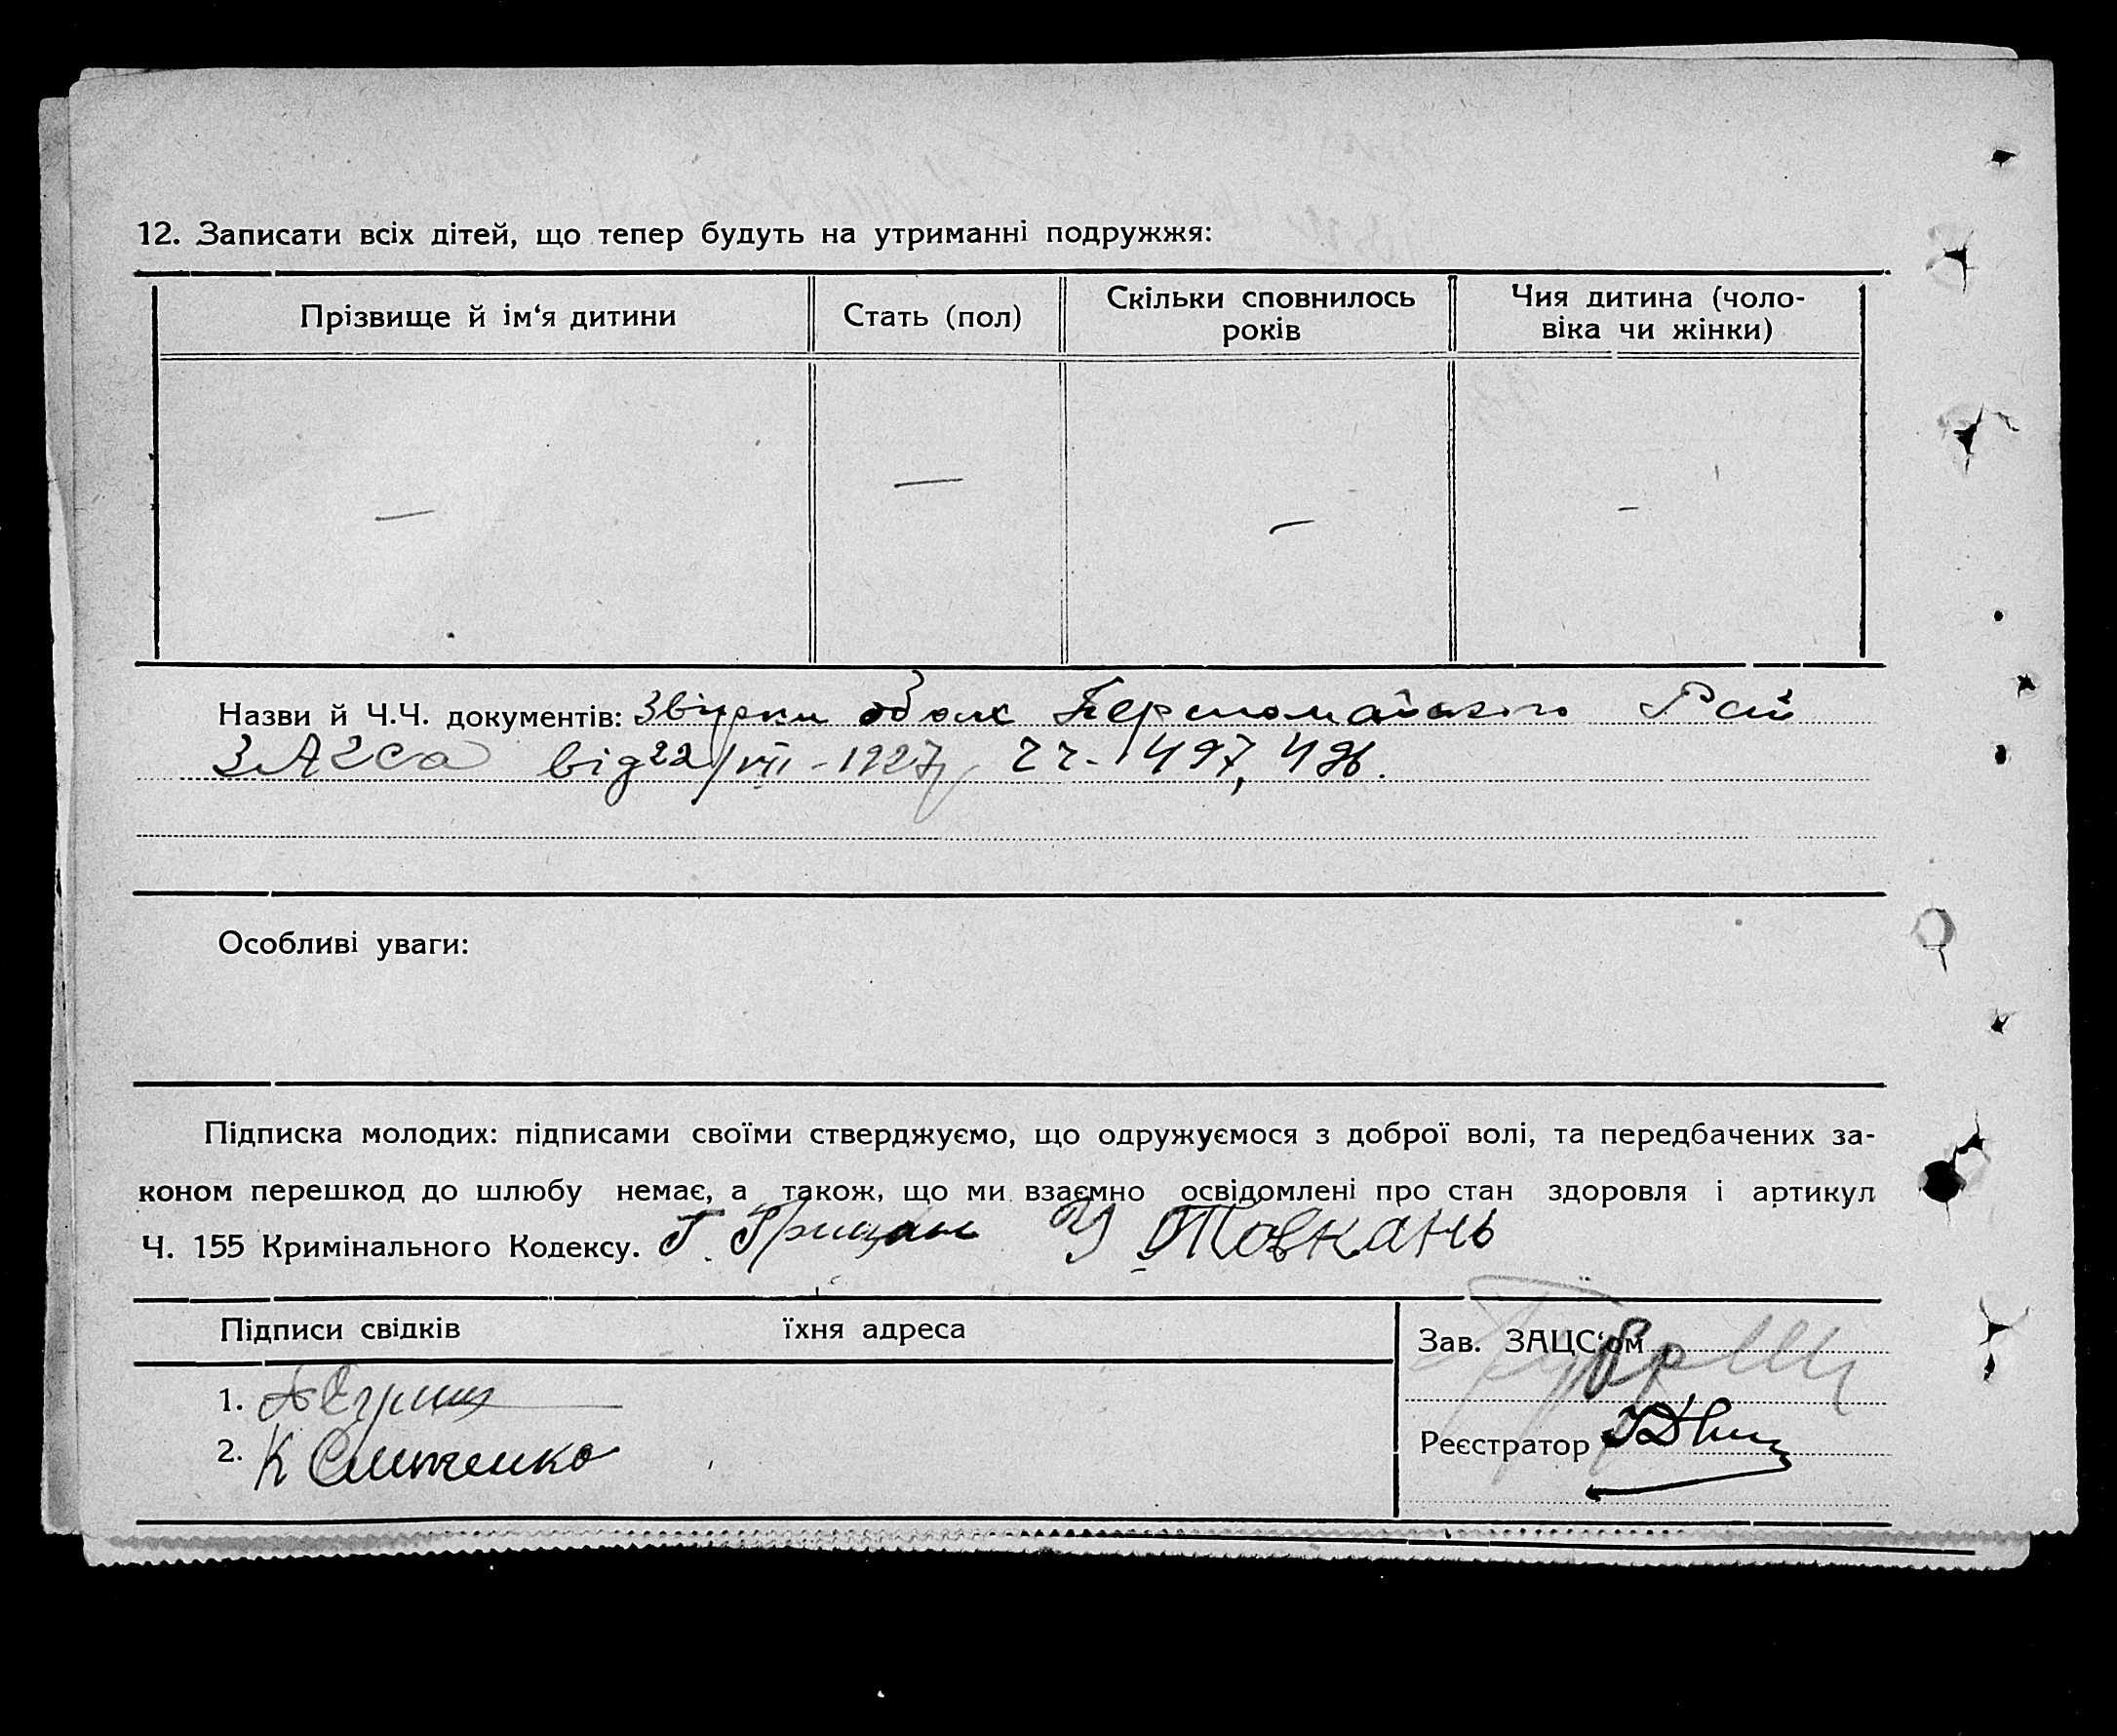 12. Записати всіх дітей, що тепер будуть на утриманні подружжя:
Прізвище й ім‘я дитини
Стать (пол)
Скільки сповнилось
років
Чия дитина (чоло-
віка чи жінки)
—
—
—
—
Назви й Ч.Ч. документів: обох Первомайського Рай
ЗАГСа від 22/VII - 1927 чч. 497, 498.
Особливі уваги:
Підписка молодих: підписами своїми стверджуємо, що одружуємося з доброї волі, та передбачених за-
коном перешкод до шлюбу немає, а також, що ми взаємно освідомлені про стан здоровля і артикул
Ч. 155 Кримінального Кодексу. Г. Грицан У Товкань
Підписи свідків їхня адреса
1.
2. К
Зав. ЗАЦС‘ом
Реєстратор